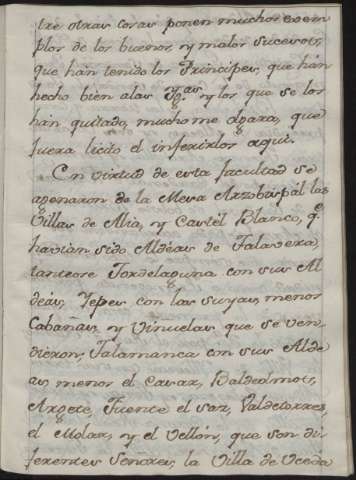 tre otras cosas ponen muchos exem
plos de los buenos, y malos sucesos,
que hán tenido los Príncipes, que hán
hecho bien alas Yg.as y los que se los
hán quitado, mucho me
fuera licito el inferirlos aqui.
En virtud de esta facultad se
agenaron de la Mesa Arzobispál las
Villas de Alía, y Castil Blanco, q.e
havían sido Aldéas de Talavera,
tanteose Tordelaguna con sus Al
déas, Yepes con las suyas, menos
Cabañas, y Viñuelas que se ven
dieron, Talamanca con sus Alde
as, menos el Casar, Baldeolmos,
Argete, Fuente el saz, Valdetorres,
el Molar, y el Vellón, que son di
ferentes Señores, la Villa de Uceda